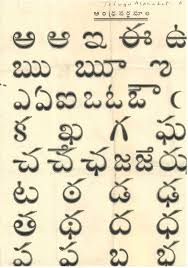 Telugu Alphabet
ఆంధ్రవర్ణమాల
అ ఆ ఇ ఈ ఉ
ఋ ౠ ఌ
ఎ ఏ ఐ ఒ ఓ ఔ
క ఖ గ ఘ
చ ౘ ఛ జ ౙ ఝ
ట ఠ డ ఢ
త థ ద ధ
ప ఫ బ భ